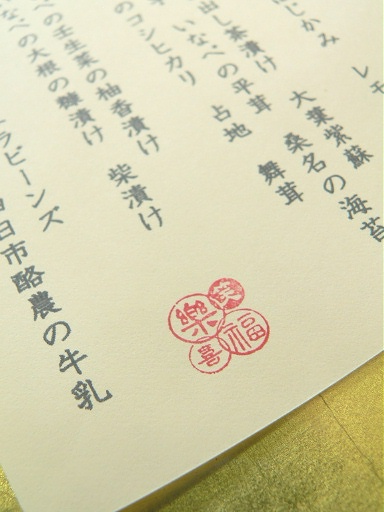 レモ
大葉紫蘇 海苔
桑名の
舞茸
はじかみ
出し茶漬け
いなべの平茸 占地
のコシヒカリ
べの壬生菜の柚香漬け 柴漬け
なべの大根の糠漬け
ラビーンズ
日市酪農の牛乳
樂
福
喜